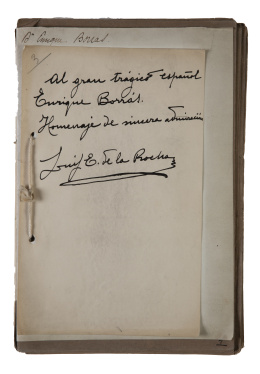 3/
Al gran trágico español
Enrique Borrás.
Homenaje de sincera admiración
Luis E. de la Rocha